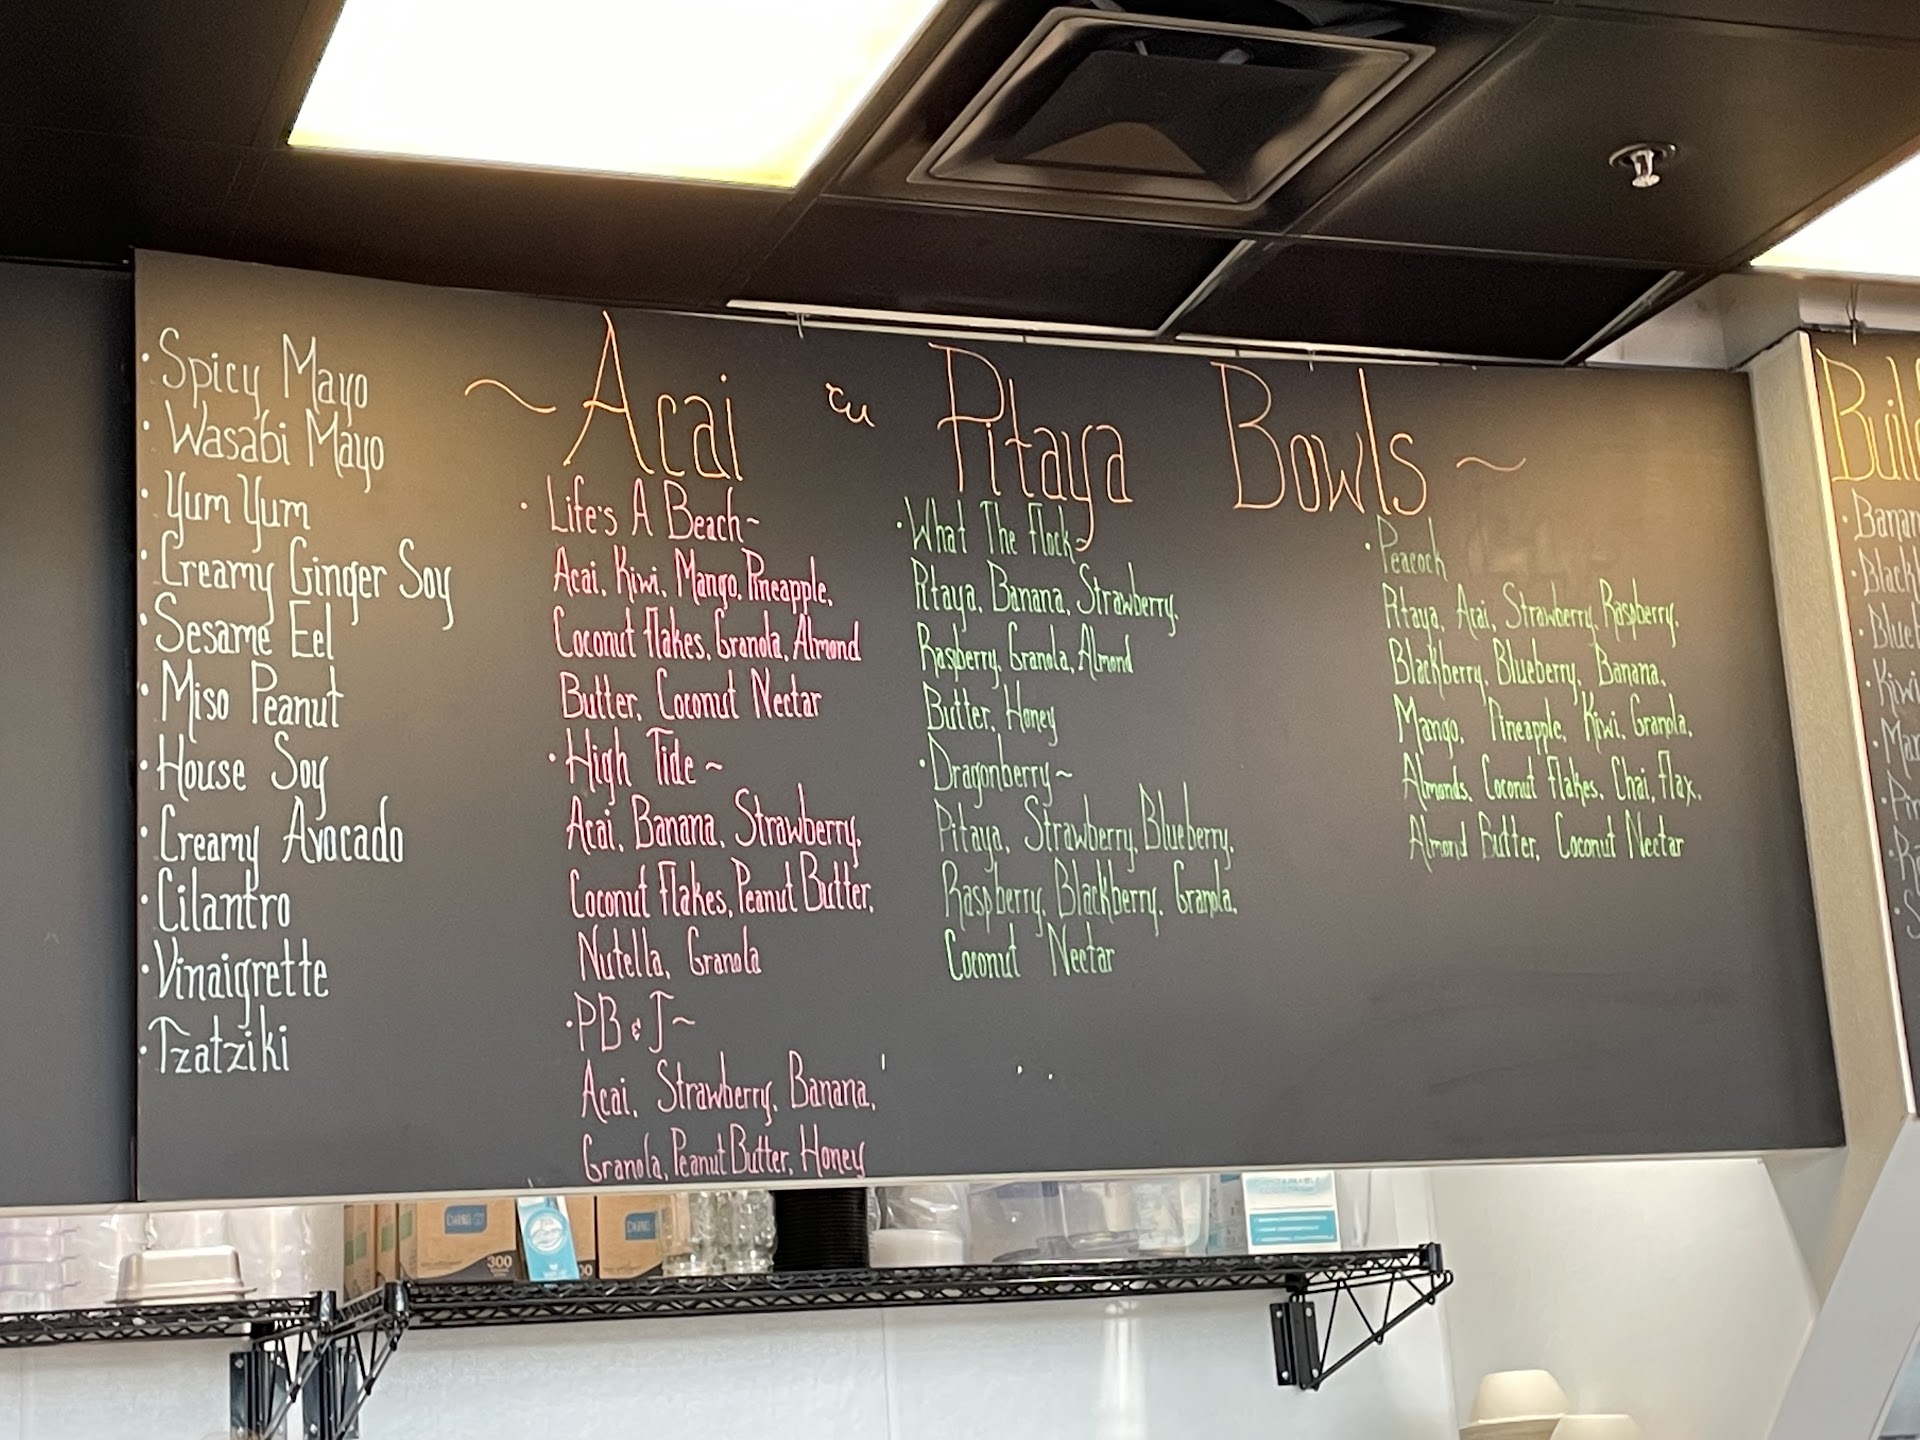 · Spicy Mayo
· Wasabi Mayo
· Yum Yum
· Creamy Ginger Soy
· Sesame Eel
· Miso Peanut
· House Soy
· Creamy Avocado
· Cilantro
· Vinaigrette
· Tzatziki
~ Acai & Pitaya Bowls ~
· Life's A Beach~
Acai, Kiwi, Mango, Pineapple,
Coconut Flakes, Granola, Almond
Butter, Coconut Nectar
· High Tide ~
Acai, Banana, Strawberry,
Coconut Flakes, Peanut Butter,
Nutella, Granola
· PB & J ~
Acai, Strawberry, Banana,
Granola, Peanut Butter, Honey
· What The Flock~
Pitaya, Banana, Strawberry,
Raspberry, Granola, Almond
Butter, Honey
· Dragonberry~
Pitaya, Strawberry, Blueberry,
Raspberry, Blackberry, Granola,
Coconut Nectar
· Peacock
Pitaya, Acai, Strawberry, Raspberry,
Blackberry, Blueberry, Banana,
Mango, Pineapple, Kiwi, Granola,
Almonds, Coconut Flakes, Chai, Flax,
Almond Butter, Coconut Nectar
300